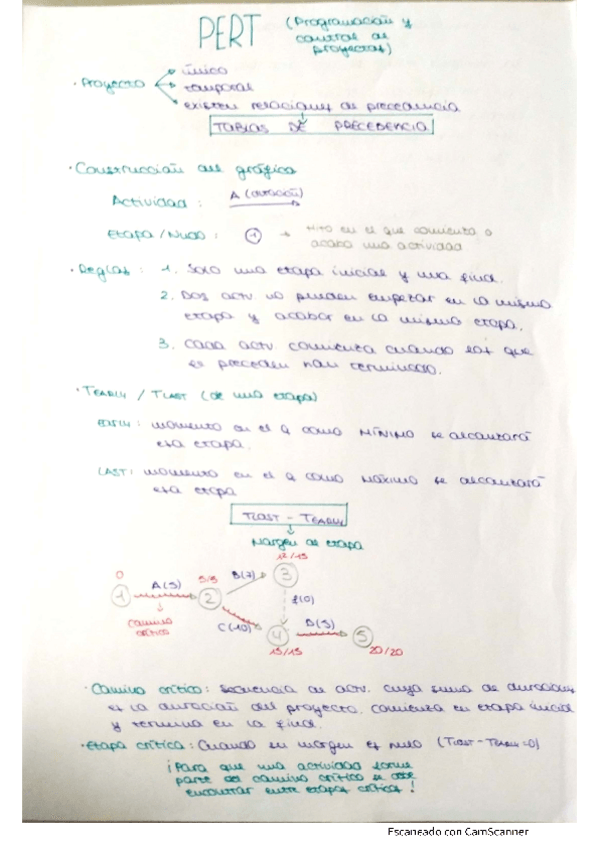 PERT (Programación y
control de
proyectos)
· Proyecto
único
temporal
existen relaciones de precedencia
TABLAS DE PRECEDENCIA
· Construcción del gráfico
Actividad : A (duración)
Etapa / Nudo : 1 → Hito en el que comienza o
acaba una actividad
· Reglas : 1. Solo una etapa inicial y una final.
2. Dos actv. no pueden empezar en la misma
etapa y acabar en la misma etapa.
3. Cada actv. comienza cuando las que
le preceden han terminado.
· TEARLY / TLAST (de una etapa)
EARLY : momento en el q como MÍNIMO se alcanzará
esa etapa.
LAST : momento en el q como máximo se alcanzará
esa etapa
TLAST - TEARLY
Margen de etapa
12/15
0 A(5) 5/5 B(7) 3
1 2 f(0)
camino
crítico
C(10) 4 D(5) 5
15/15 20/20
· Camino crítico : secuencia de actv. cuya suma de duraciones
es la duración del proyecto. Comienza en etapa inicial
y termina en la final.
· Etapa crítica : Cuando su margen es nulo (TLAST - TEARLY = 0)
¡Para que una actividad forme
parte del camino crítico se debe
encontrar entre etapas críticas!
Escaneado con CamScanner